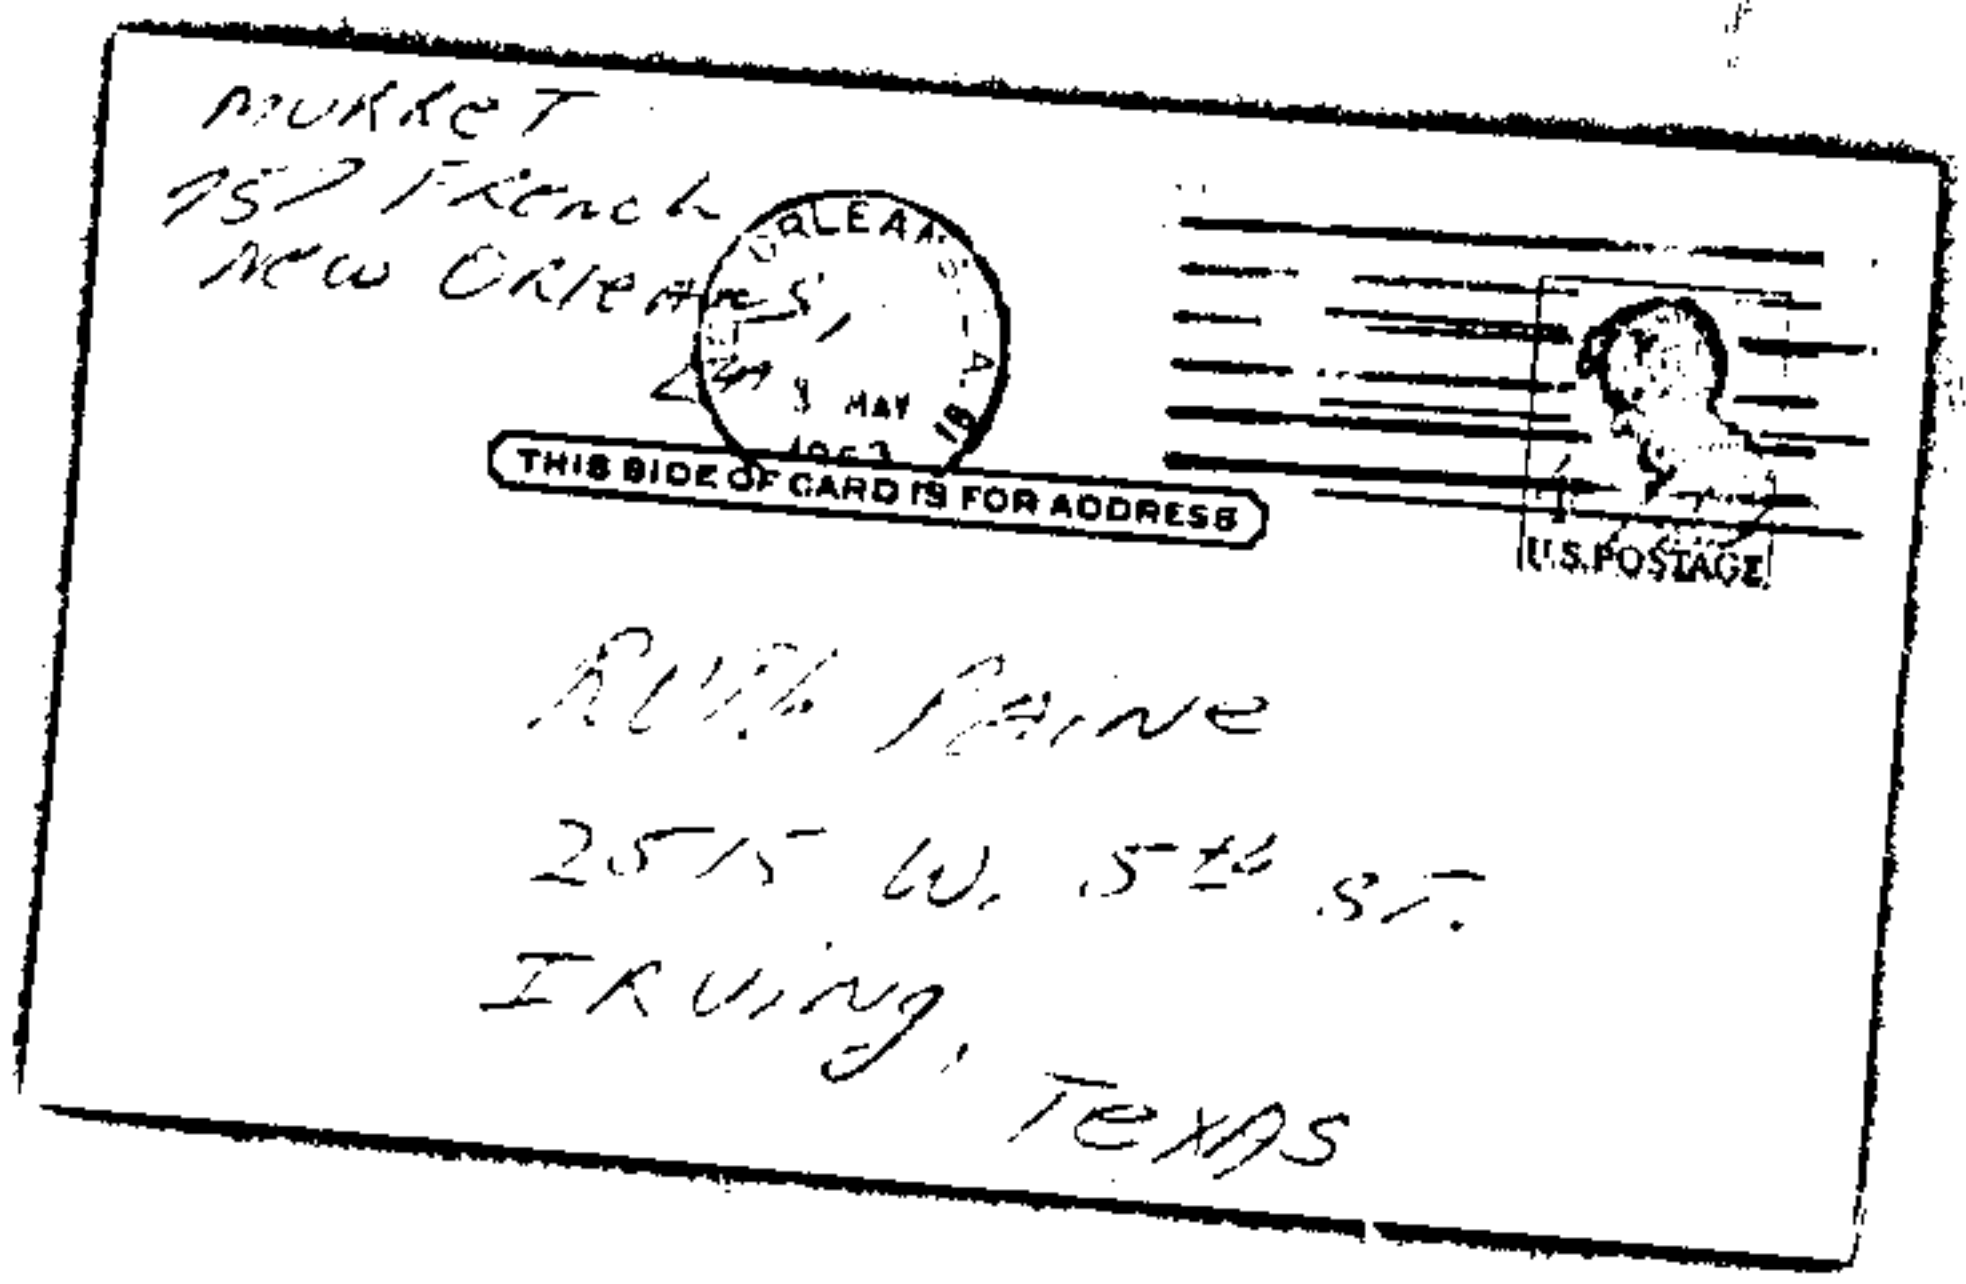 MURRET
757 French
New Orleans,
La
NEW ORLEANS, LA. 18
MAY
1963
THIS SIDE OF CARD IS FOR ADDRESS
U.S. POSTAGE
Ruth Paine
2515 W. 5th ST.
IRVING,
TEXAS